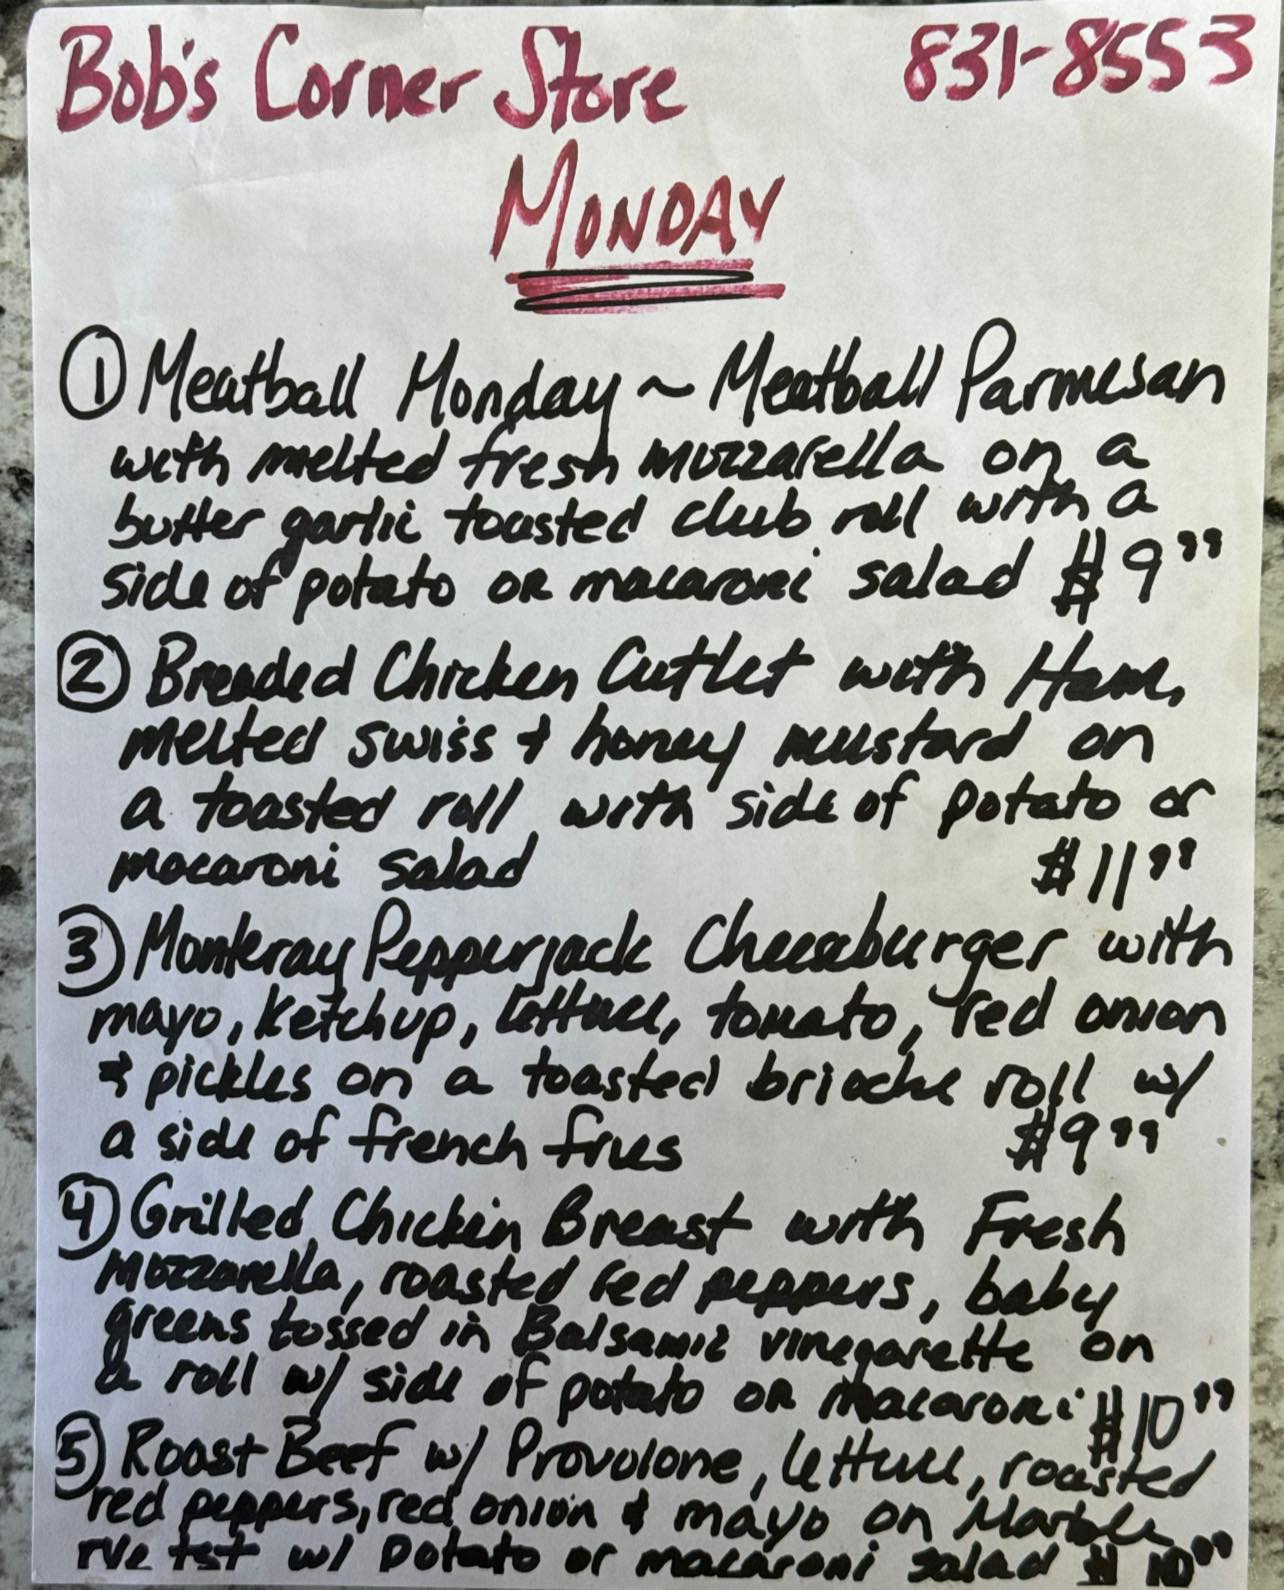 Bob's Corner Store 831-8553
MONDAY
① Meatball Monday ~ Meatball Parmesan
with melted fresh mozzarella on a
butter garlic toasted club roll with a
side of potato or macaroni salad $9⁹⁹
② Breaded Chicken Cutlet with Ham,
melted swiss + honey mustard on
a toasted roll with side of potato or
macaroni salad $11⁹⁹
③ Monteray Pepperjack Cheeseburger with
mayo, ketchup, lettuce, tomato, red onion
& pickles on a toasted brioche roll w/
a side of french fries $9⁹⁹
④ Grilled Chicken Breast with Fresh
mozzarella, roasted red peppers, baby
greens tossed in Balsamic vinegarette on
a roll w/ side of potato or macaroni $10⁹⁹
⑤ Roast Beef w/ Provolone, lettuce, roasted
red peppers, red onion & mayo on Marble
rye tst w/ potato or macaroni salad $10⁹⁹